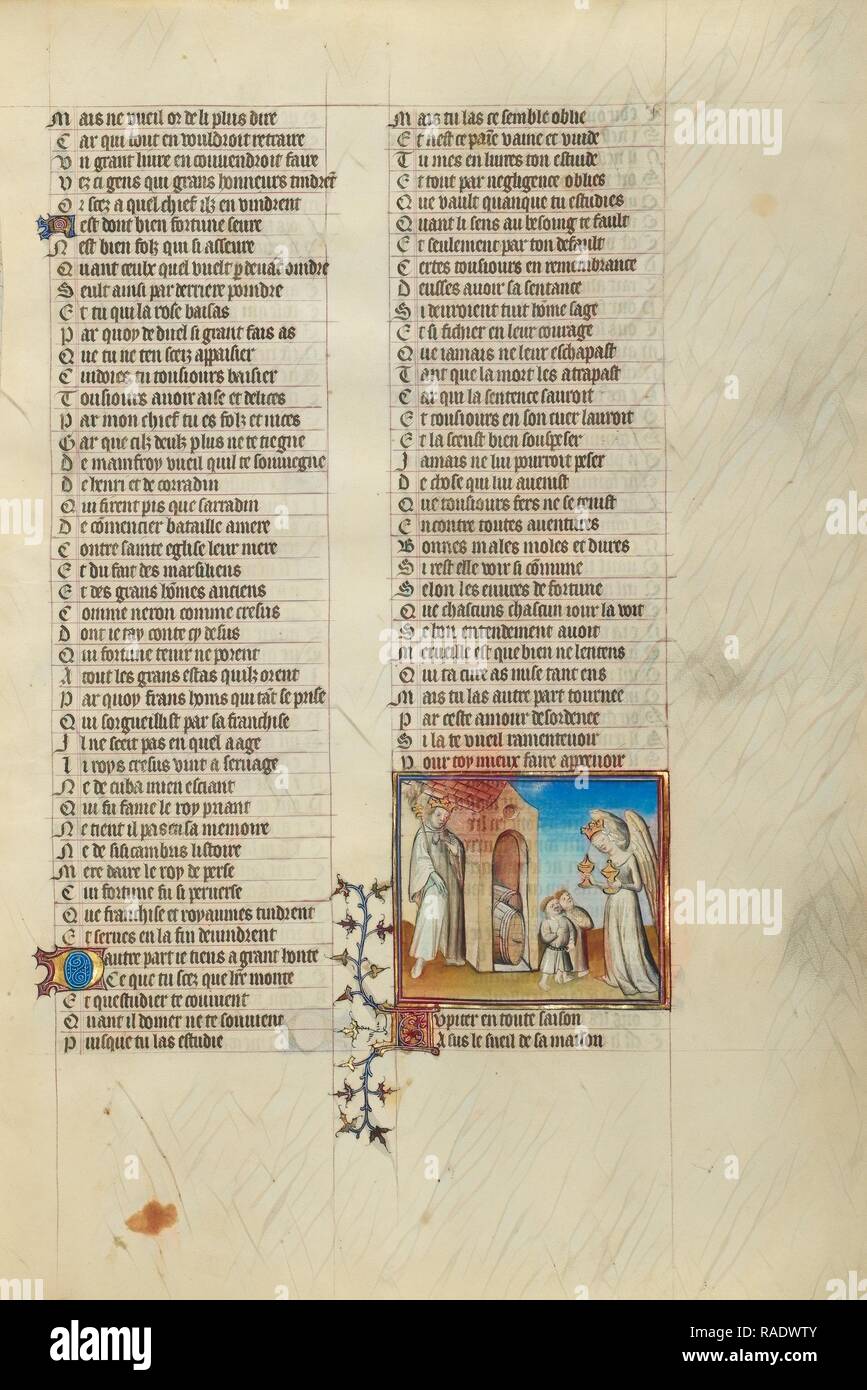 Mais ne vueil or de li plus dire
Car qui tout en vouldroit retraire
Un grant livre en convendroit faire
Vez ci gens qui grans honneurs tindrent
Or scez a quel chief ilz en vindrent
Nest dont bien fortune seure
Nest bien folz qui si asseure
Quant ceulx quel vuelt p devāt oindre
Seult ainsi par derriere poindre
Et tu qui la rose baisas
Par quoy de duel si grant fais as
Que tu ne ten scez appaisier
Cuidoies tu tousiours baisier
Tousiours avoir aise et delices
Par mon chief tu es folz et nices
Gar que cilz deulz plus ne te tiegne
De mainfroy vueil quil te souviegne
De henri et de corradin
Qui firent pis que sarradin
De cōmencier bataille amere
Contre sainte eglise leur mere
Et du fait des marsiliens
Et des grans hōmes anciens
Comme neron comme cresus
Dont ie tay conte cy desus
Qui fortune tenir ne porent
A tout les grans estas quilz orent
Par quoy frans homs qui tāt se prise
Qui sorgueillist par sa franchise
Il ne scet pas en quel aage
Li roys cresus vint a servage
Ne de cuba mien esciant
Qui fu fame le roy priant
Ne tient il pas en sa memoire
Ne de sisicambris listoire
Mere daire le roy de perse
Cui fortune fu si perverse
Que franchise et royaumes tindrent
Et serves en la fin devindrent
Dautre part ie tiens a grant honte
Ce que tu scez que lr̄e monte
Et questudier te convient
Quant il domer ne te souvient
Puisque tu las estudie
Mais tu las ce semble oblie
Et nest ce paīe vaine et vuide
Tu mes en livres ton estuide
Et tout par negligence oblies
Que vault quanque tu estudies
Quant li sens au besoing te fault
Et seulement par ton default
Certes tousiours en remembrance
Deusses avoir sa sentance
Si devroient tuit hōme sage
Et si fichier en leur courage
Que iamais ne leur eschapast
Tant que la mort les atrapast
Car qui la sentence sauroit
Et tousiours en son cuer lauroit
Et la sceust bien souspeser
Jamais ne lui pourroit peser
De chose qui lui avenist
Que tousiours fers ne se tenist
Encontre toutes aventures
Bonnes males moles et dures
Si rest elle voir si cōmune
Selon les euvres de fortune
Que chascuns chascun iour la voit
Se bon entendement avoit
Merveille est que bien ne lentens
Qui ta cure as mise tant ens
Mais tu las autre part tournee
Par ceste amour desordenee
Si la te vueil ramentevoir
Pour toy mieux faire apprenoir
Jupiter en toute saison
A sus le sueil de sa maison
alamy
Image ID: RADWTY
www.alamy.com